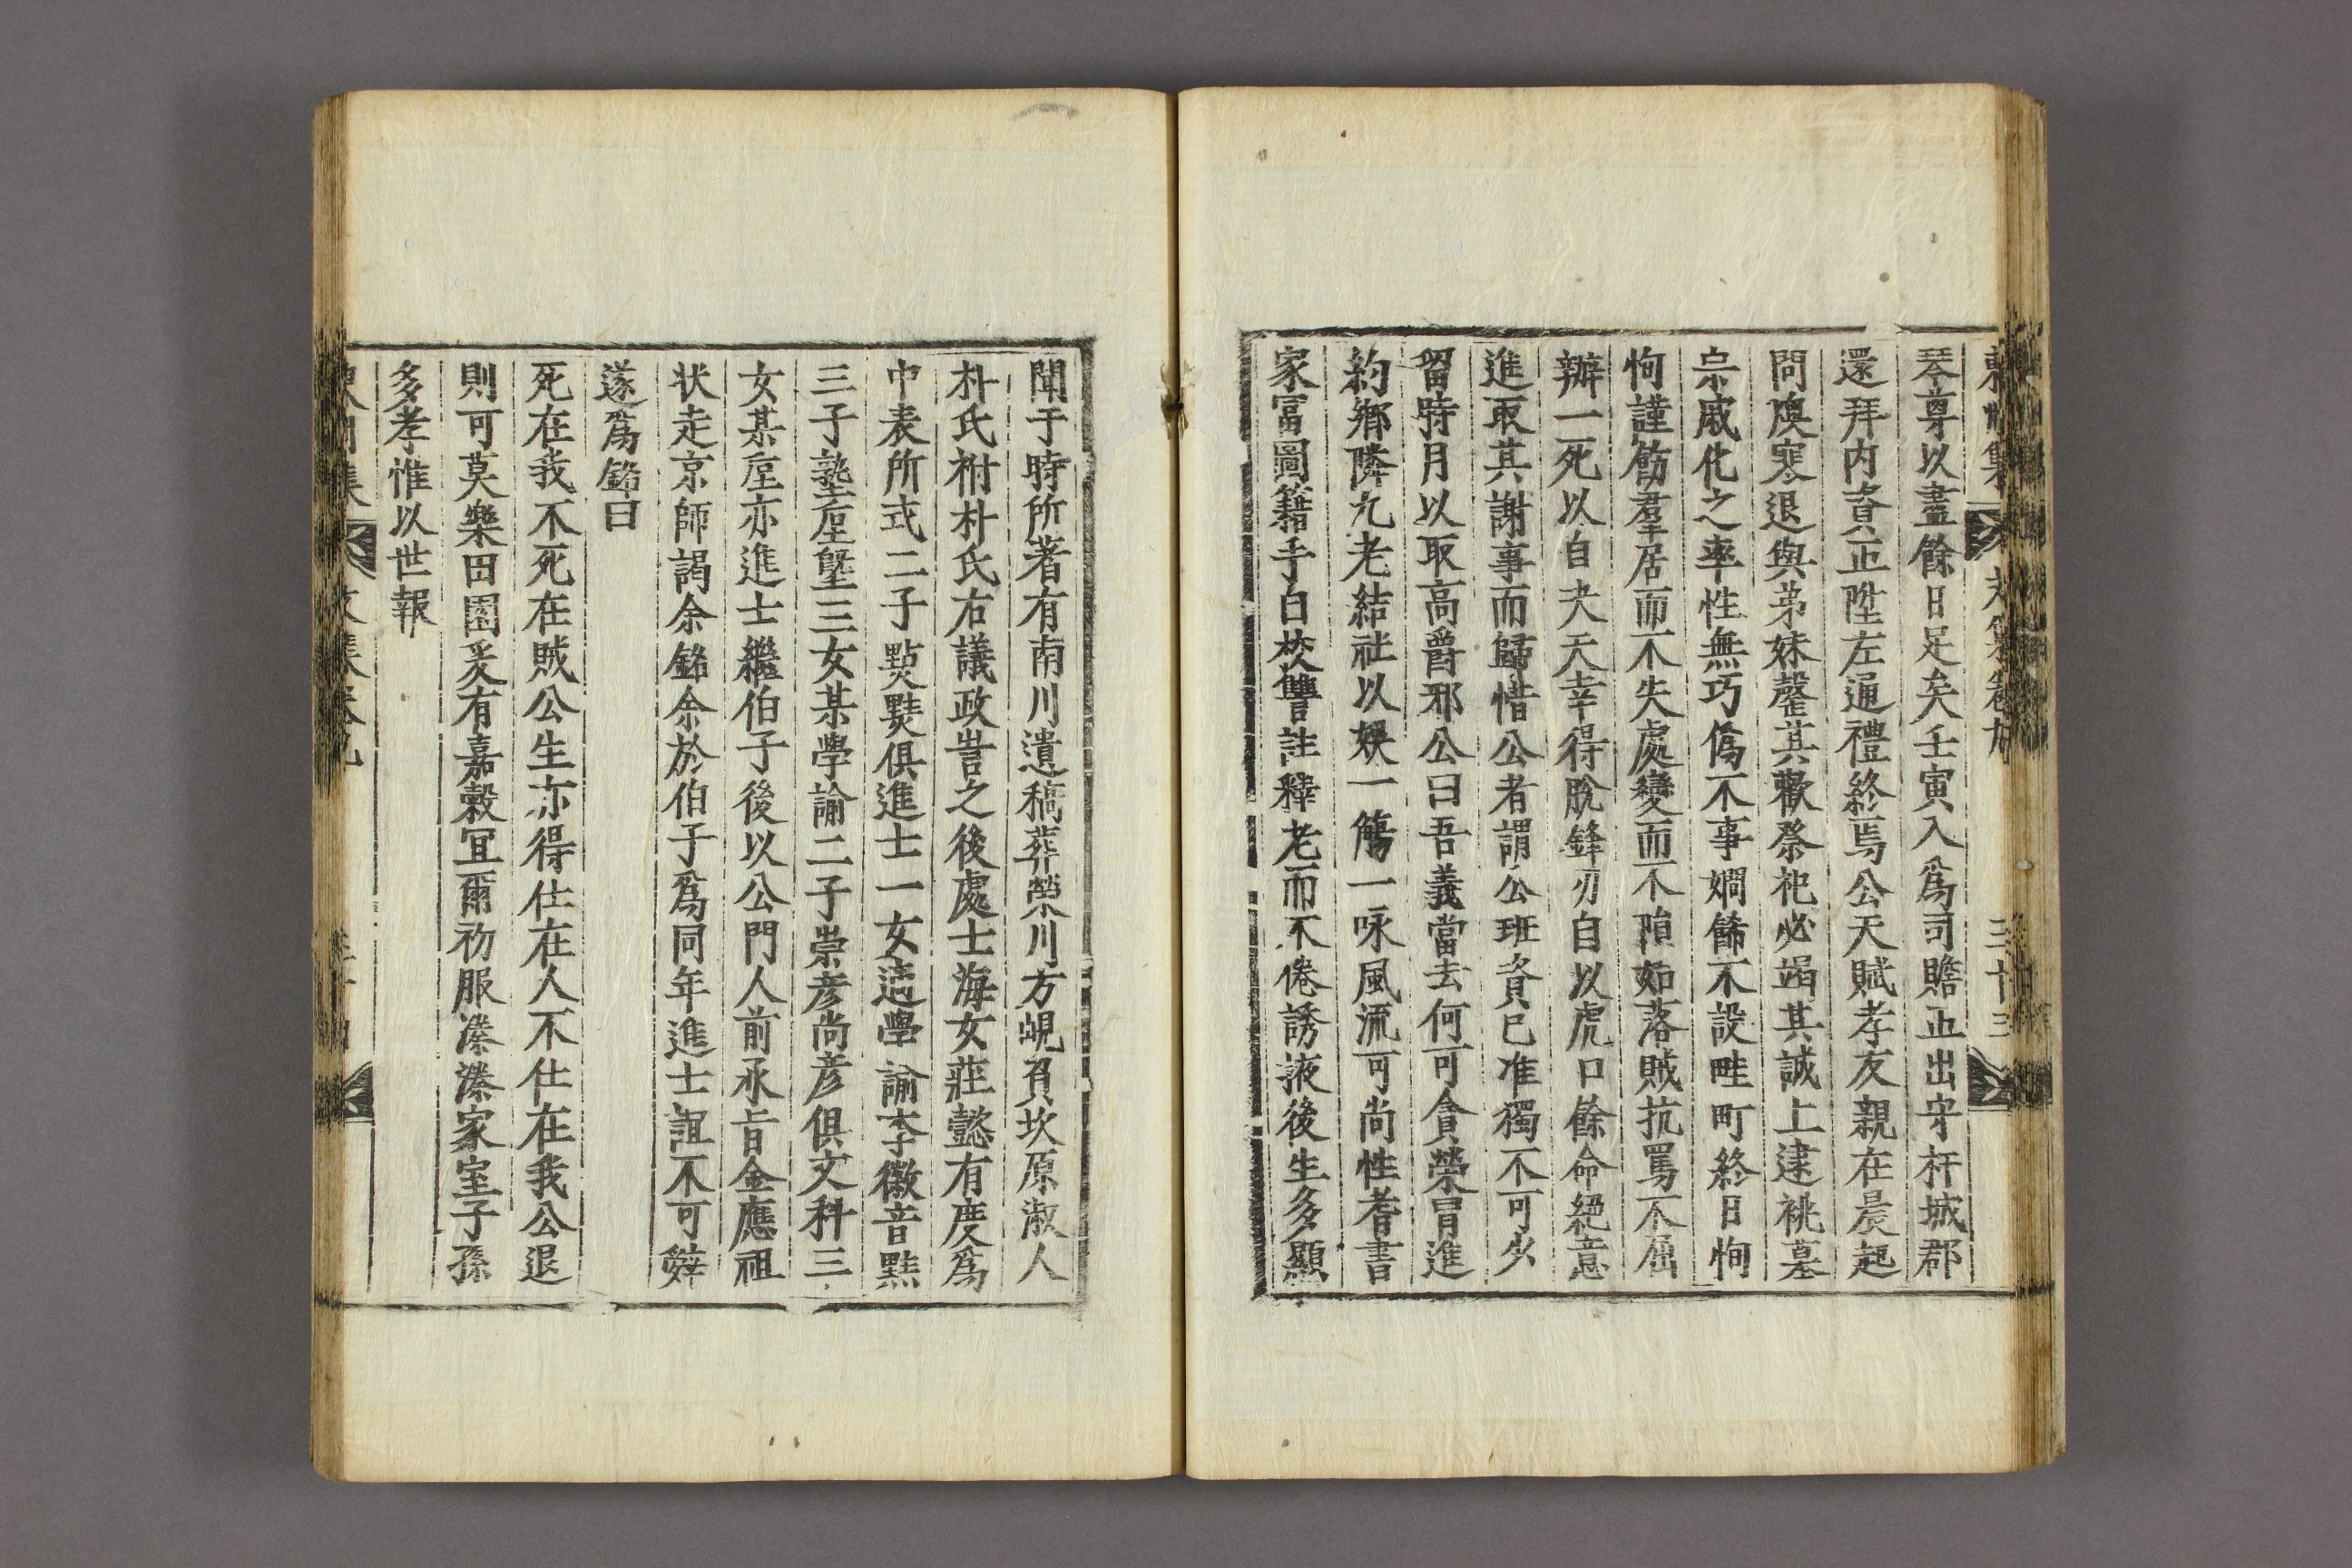 琴尊以盡餘日足矣壬寅入爲司贍正出守杆城郡
還拜内資正陞左通禮終焉公天賦孝友親在晨起
問燠寒退與弟妹罄其歡祭祀必竭其誠上逮祧墓
宗戚化之率性無巧僞不事嫺餙不設畦町終日恂
恂謹飭羣居而不失處變而不隕如落賊抗罵不屈
辦一死以自夬天幸得脫鋒刃自以虎口餘命絕意
進取其謝事而歸惜公者謂公班資已准獨不可少
留時月以取高爵邪公曰吾義當去何可貪榮冒進
約鄉隣九老結社以娛一觴一咏風流可尚性耆書
家冨圖籍手自校讐註釋老而不倦誘掖後生多顯
三十三
聞于時所著有南川遺稿葬榮川方峴負坎原淑人
朴氏祔朴氏右議政訔之後處士海女莊懿有度爲
中表所式二子㸃䵻俱進士一女適學諭李徽音㸃
三子塾垕墍三女某學諭二子崇彦尚彦俱文科三
女某垕亦進士繼伯子後以公門人前承旨金應祖
状走京師謁余銘余於伯子爲同年進士誼不可辭
遂爲銘曰
死在我不死在賊公生亦得仕在人不仕在我公退
則可莫樂田園爰有嘉穀冝爾初服溱溱家室子孫
多孝惟以世報